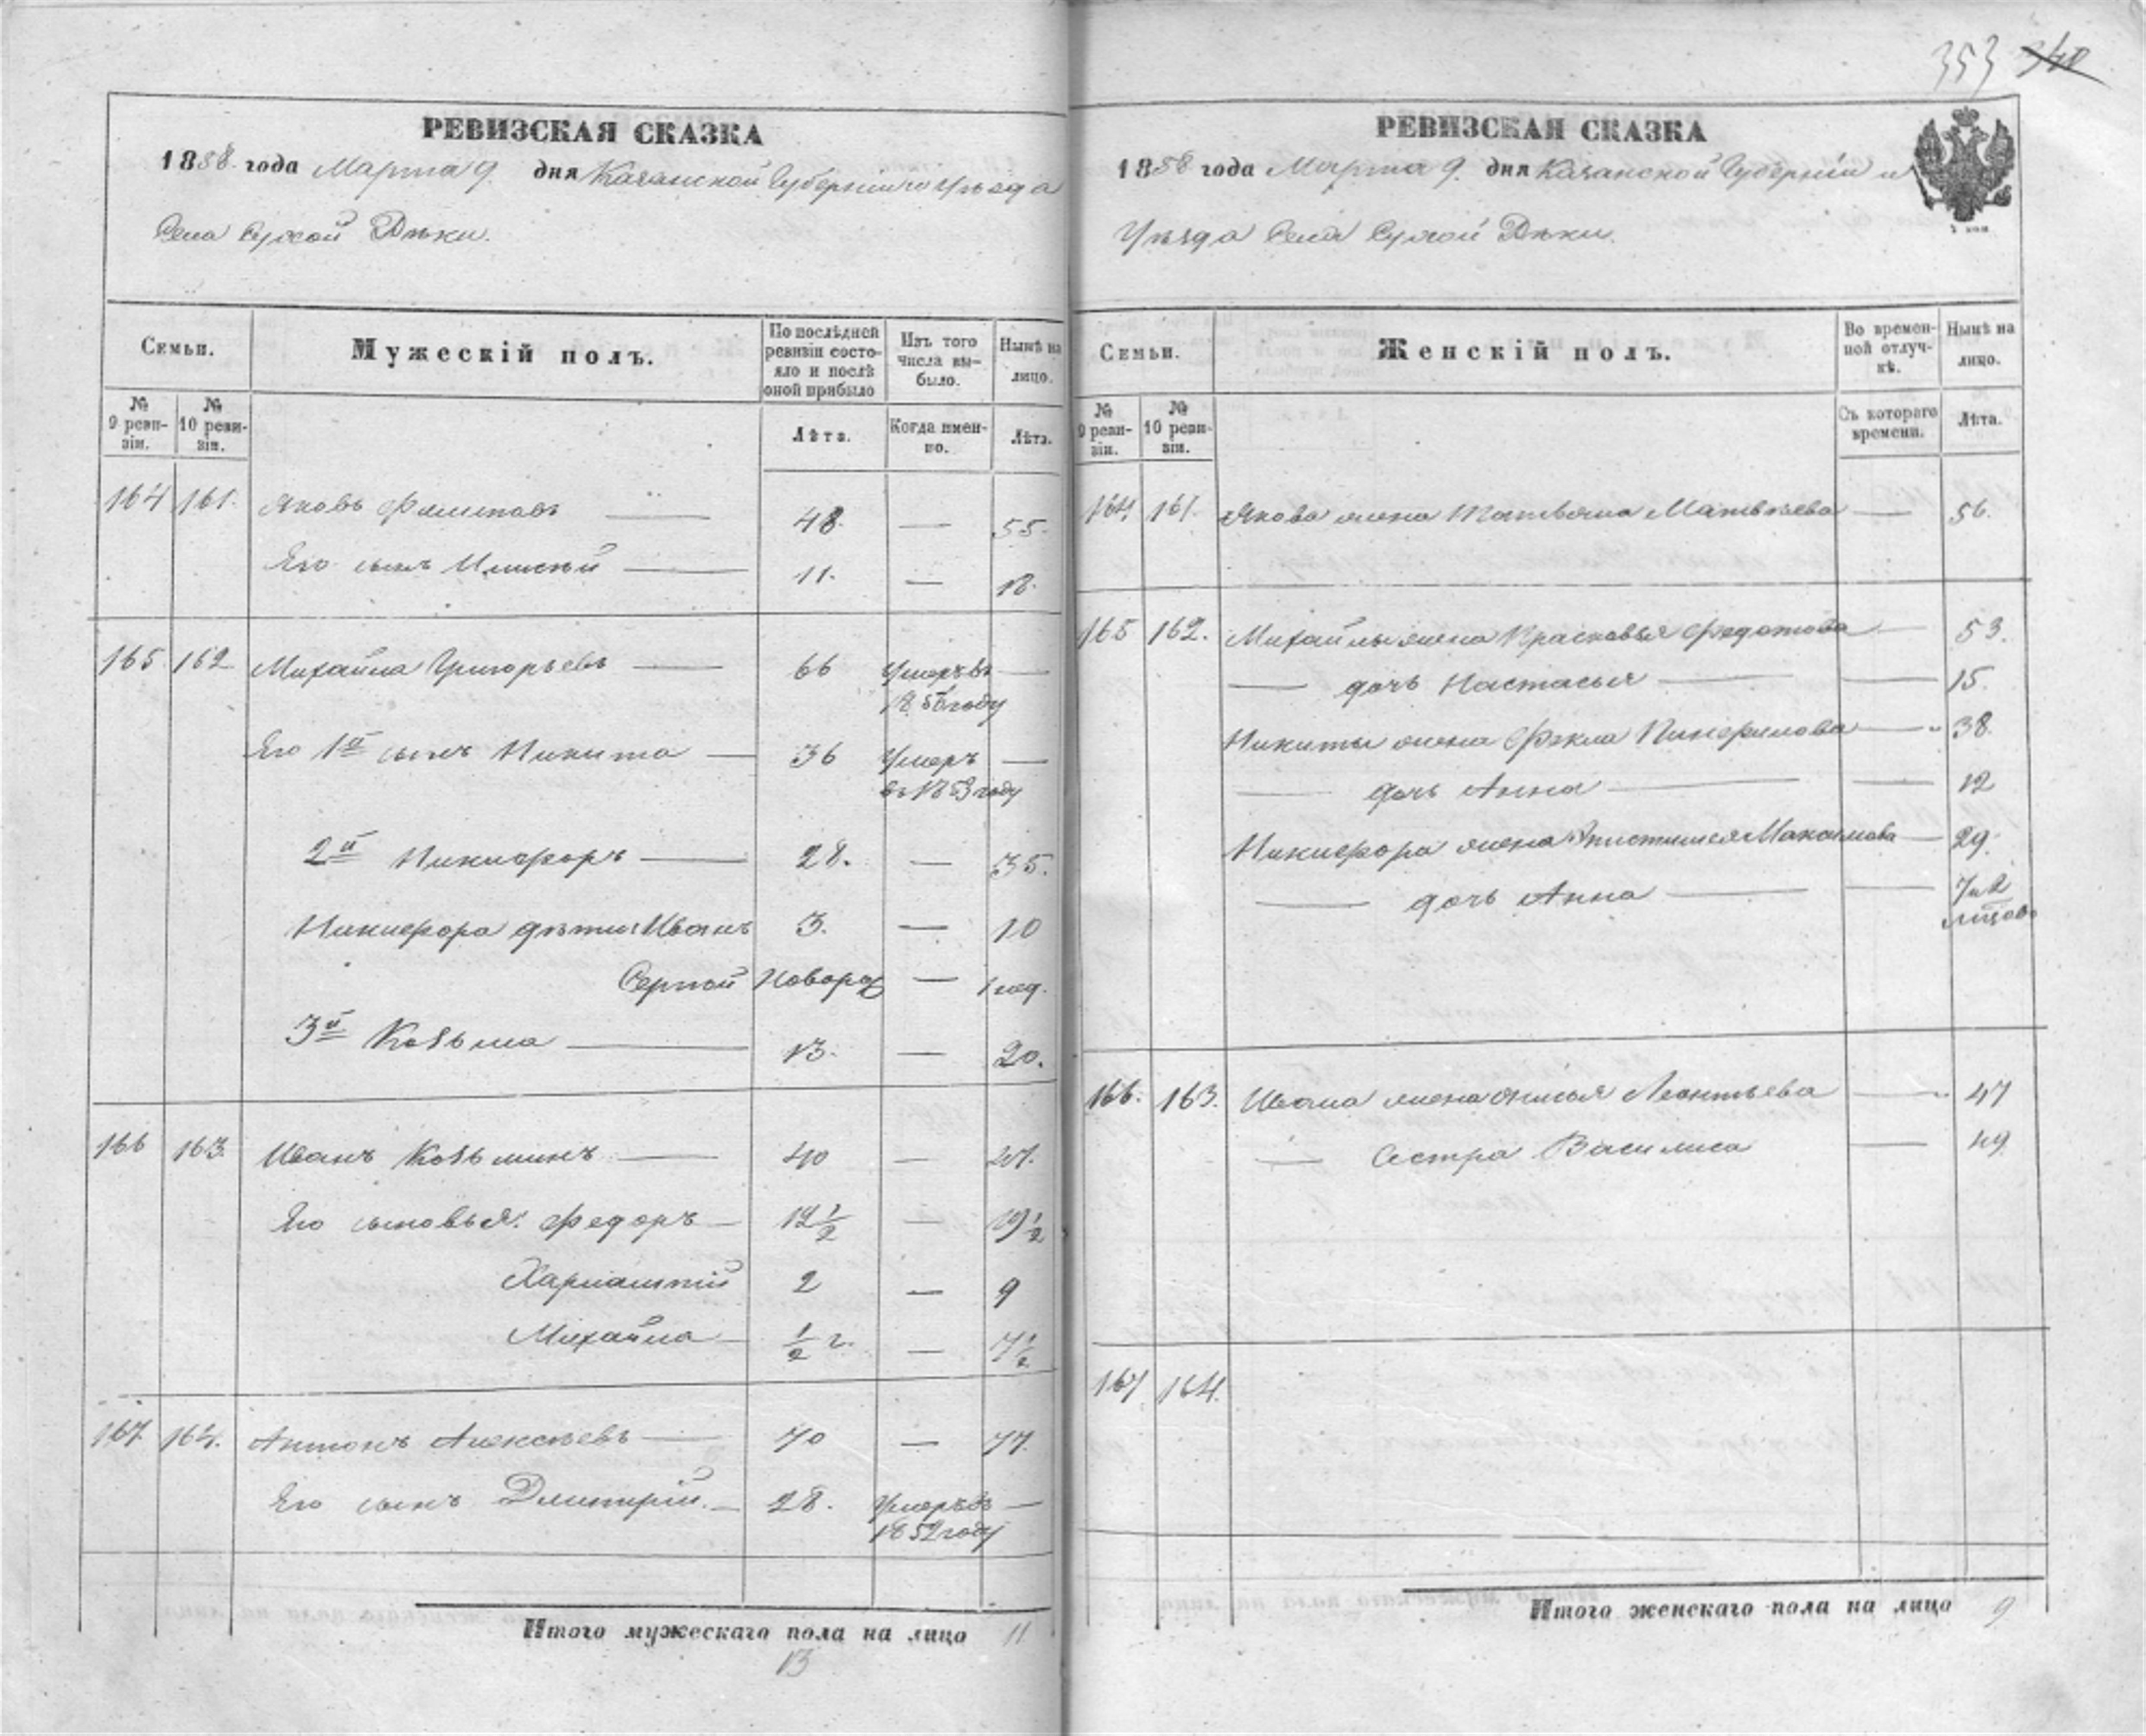 353 340
РЕВИЗСКАЯ СКАЗКА
1858 года Марта 9. дня Казанской Губерніи и Уѣзда
Села Сухой Рѣки.
Семьи.
Мужескій полъ.
По послѣдней ревизіи состояло и послѣ оной прибыло
Изъ того числа выбыло.
Нынѣ на лицо.
№ 9 ревизіи.
№ 10 ревизіи.
Лѣта.
Когда именно.
Лѣта.
164 161. Яковъ Филиповъ — 48. — 55.
Его сынъ — 11. — 18.
165 162 Михайла Григорьевъ — 66 Умеръ въ —
18 56 году
Его 1й сынъ Никита — 36 Умеръ —
въ 1853 году
2й Никифоръ — 28. — 35.
Никифора дѣти: Иванъ 3. — 10
Сергѣй Новорож — 1 нед.
3й Козьма — 13. — 20.
166 163. Иванъ Козьминъ — 40 — 47.
Его сыновья: Федоръ — 12 1/2 — 19 1/2
Харлампій 2 — 9
Михайла — 1/2 г. — 7 1/2
167. 164. Антонъ Алексѣевъ — 70 — 77.
Его сынъ Дмитрій. — 28. Умеръ въ —
1852 году
Итого мужескаго пола на лицо 11
13
РЕВИЗСКАЯ СКАЗКА
1858 года Марта 9. дня Казанской Губерніи и
Уѣзда Села Сухой Рѣки.
Семьи.
Женскій полъ.
Во временной отлучкѣ.
Нынѣ на лицо.
№ 9 ревизіи.
№ 10 ревизіи.
Съ котораго времени.
Лѣта.
164. 161. Якова жена Татьяна Матвѣева — 56.
165 162. Михайлы жена Прасковья Федотова — 53.
— дочь Настасья — — 15.
Никиты жена Фекла — 38.
— дочь Анна — — 12
Никифора жена Максимова — 29.
— дочь Анна — — 7 и 2
166. 163. Ивана жена Леонтьева — 47
— Сестра Василиса — 49
167 164.
Итого женскаго пола на лицо 9